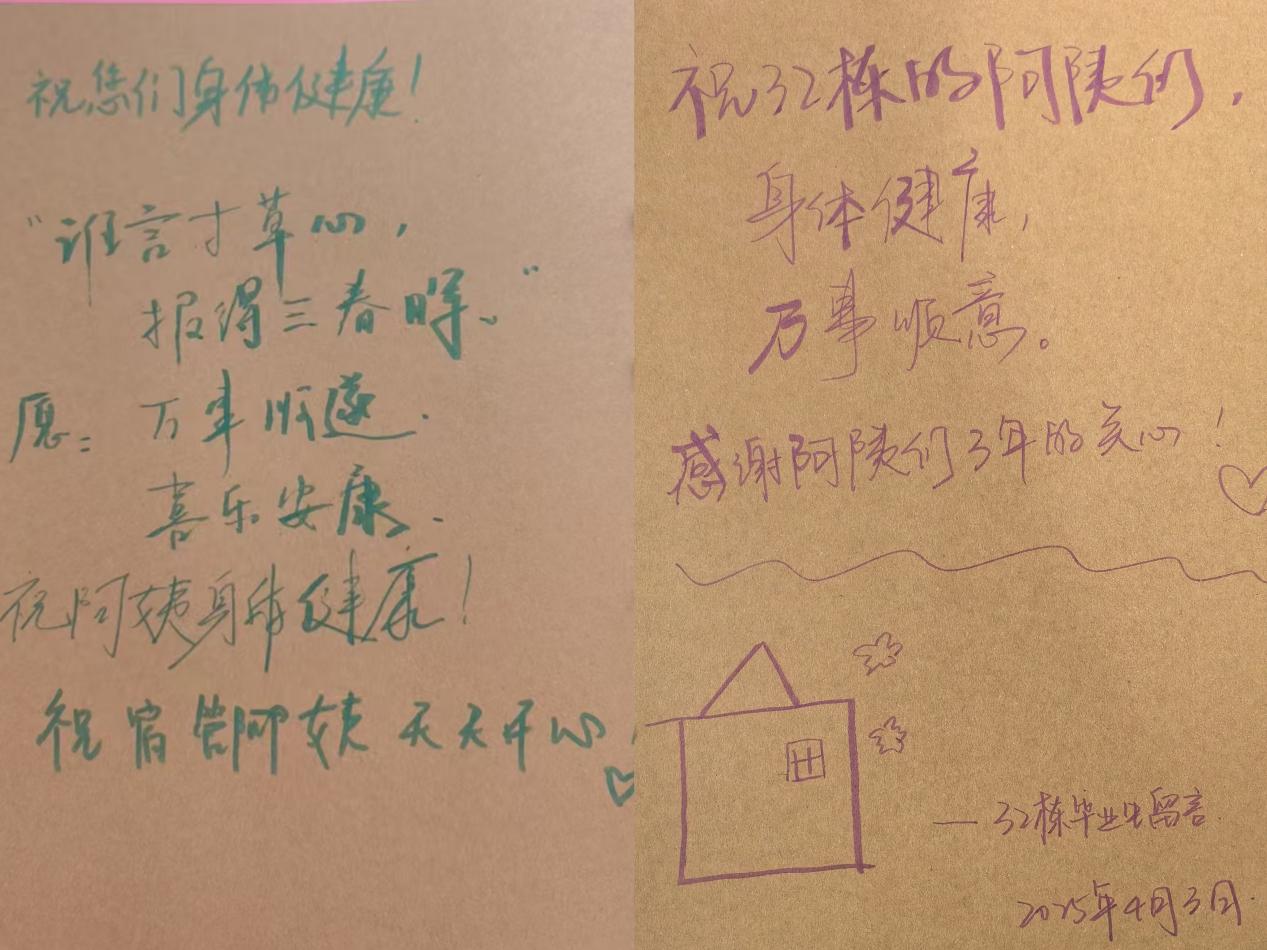 祝您们身体健康！
“谁言寸草心，
报得三春晖。”
愿：万事顺遂．
喜乐安康．
祝阿姨身体健康！
祝宿管阿姨天天开心
祝32栋的阿姨们，
身体健康，
万事顺意。
感谢阿姨们3年的关心！
— 32栋毕业生留言
2025年4月3日.